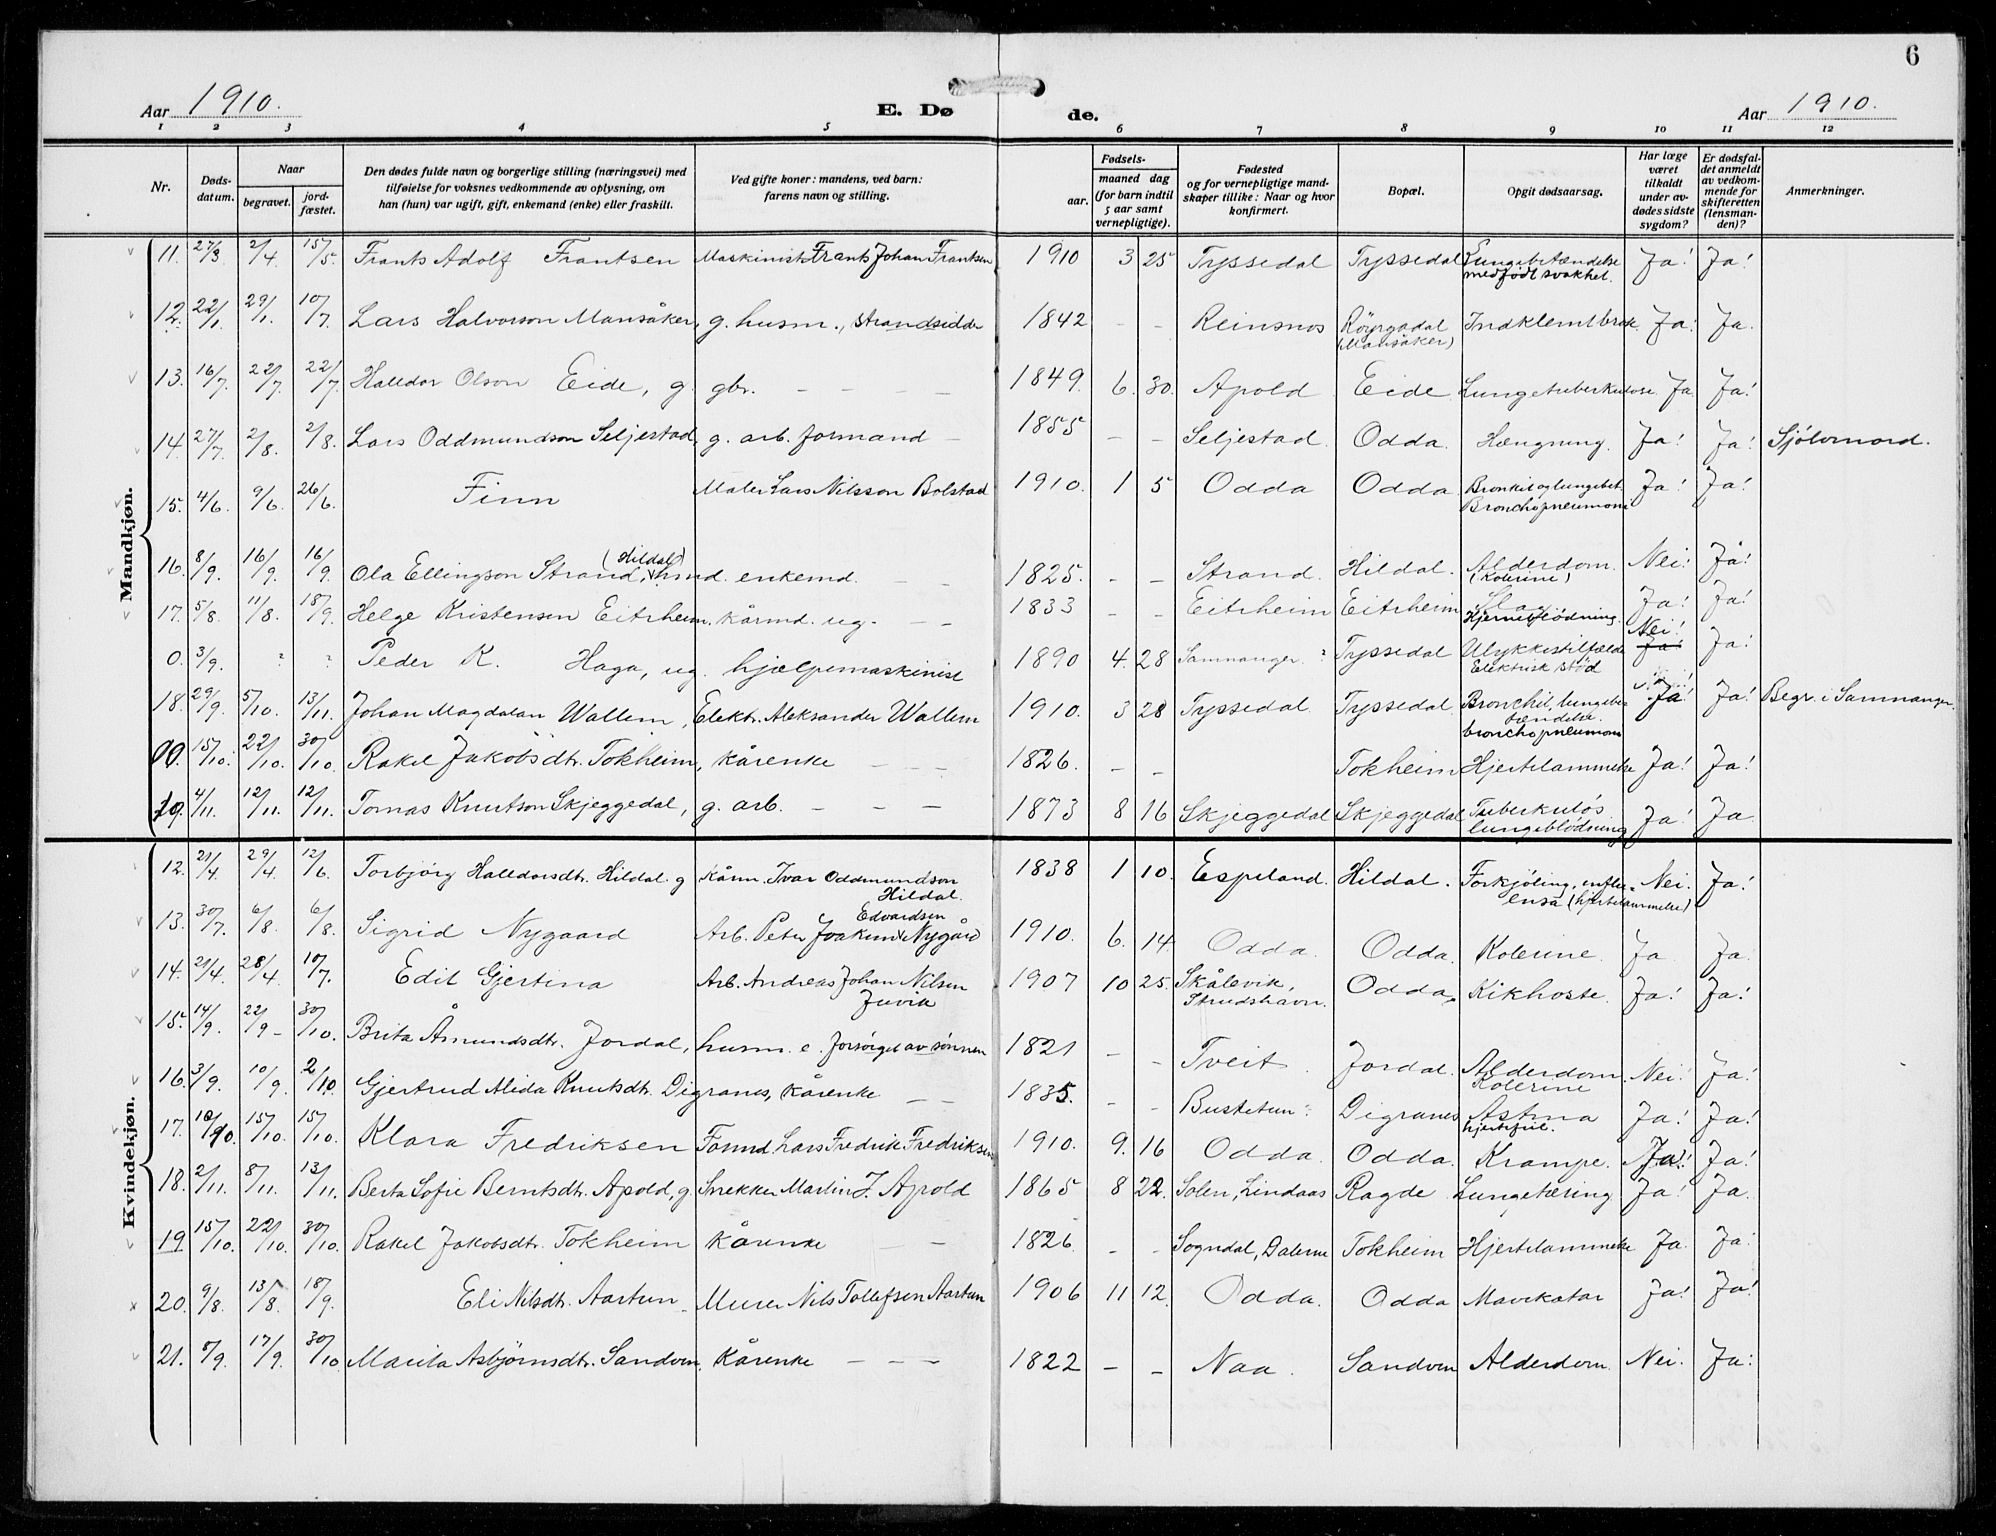 6
Aar 1910. E. Døde. Aar 1910.
1 2 3 4 5 6 7 8 9 10 11 12
Nr. | Døds-datum. | Naar begravet. | jord-fæstet. | Den dødes fulde navn og borgerlige stilling (næringsvei) med tilføielse for voksnes vedkommende av oplysning, om han (hun) var ugift, gift, enkemand (enke) eller fraskilt. | Ved gifte koner: mandens, ved barn: farens navn og stilling. | Fødsels- aar. | maaned dag (for barn indtil 5 aar samt vernepligtige). | Fødested og for vernepligtige mandskaper tillike: Naar og hvor konfirmert. | Bopæl. | Opgit dødsaarsag. | Har læge været tilkaldt under avdødes sidste sygdom? | Er dødsfaldet anmeldt av vedkommende for skifteretten (lensmanden)? | Anmerkninger.
Mandkjøn.
11. 27/3 2/4 15/5. Frants Adolf Frantsen Maskinist Frants Johan Frantsen 1910 3 25 Tryssedal Tryssedal Lungebetændelse medfødt svakhet. Ja! Ja!
12. 22/1. 29/1. 10/7. Lars Halvorson Mansåker, g. husm., strandsidder 1842 - - Reinsnos (Mansåker) Indklemt brok. Ja! Ja.
13. 16/7. 22/7. 22/7. Halldor Olson Eide, g. gbr. - - - 1849. 6. 30. Apold Eide Lungetuberkulose. Ja Ja!
14. 27/7. 2/8. 2/8. Lars Oddmundson Seljestad, g. arb. formand - 1855 - - Seljestad. Odda. Hængning. Ja! Ja! Sjølvmord.
15. 4/6. 9/6. 26/6. Finn Maler Lars Nilsson Bolstad 1910. 1 5 Odda Odda Bronkit og lungebet. Bronchopneumoni Ja! Ja!
16. 8/9. 16/9. 16/9. Ola Ellingson Strand, (Hildal) enkemd. - - 1825. - - Strand. Hildal. Alderdom. (Kolerine) Nei! Ja!
17. 5/8. 11/8. 18/9. Helge Kristensen Eitrheim. kårmd. ug. - - 1833 - - Eitrheim Eitrheim Slag Hjerneblødning. Ja! Ja!
0. 3/9. ? ? Peder K. Haga, ug. hjælpemaskinist 1890 4. 28 Samnanger. ? Tryssedal Ulykkestilfælde Elektrisk stød Nei! Ja! Ja!
18. 29/9. 5/10. 13/11. Johan Magdalan Wallem, Elektr. Aleksander Wallem 1910. 3 28 Tryssedal Tryssedal. Bronchit, lungebetændelse. bronchopneumoni Ja! Ja! Begr. i Samnanger.
00. 15/10. 22/10. 30/10. Rakel Jakobsdtr. Tokheim, kårenke - - - 1826. - - Tokheim Hjertelammelse Ja! Ja!
19. 4/11. 12/11. 12/11. Tomas Knutson Skjeggedal, g. arb. - - - 1873 8 16 Skjeggedal Skjeggedal Tuberkuløs lungeblødning Ja! Ja
Kvindekjøn.
12. 21/4 29/4. 12/6. Torbjørg Halldorsdtr. Hildal. g kårm. Ivar Oddmundson Hildal. 1838 1 10. Espeland. Hildal. Forkjøling, influensa (hjertelammelse) Nei. Ja!
13. 30/7. 6/8. 6/8. Sigrid Nygaard Arb. Peter Joakim Edvardsen Nygård 1910. 6. 14 Odda. Odda. Kolerine. Ja Ja.
14. 21/4. 28/4. 10/7. Edit Gjertina Arb. Andreas Johan Nilsen Juvik 1907 10 25. Skålevik, Strudshavn. Odda. Kikhoste. Ja! Ja!
15. 14/9. 22/9- 30/10. Brita Åsmundsdtr. Jordal, husm. e. forsørget av sønnen 1821 - - Tveit. Jordal. Alderdom. Kolerine Nei! Ja!
16. 3/9. 10/9. 2/10. Gjertrud Alida Knutsdtr. Digranes, kårenke - - 1835. - - Bustetun Digranes Astma hjertefeil. Ja! Ja!
17. 10/10. 15/10. 15/10. Klara Fredriksen Formd. Lars Fredrik Fredriksen. 1910. 9. 16 Odda. Odda. Krampe. Ja! Ja!
18. 2/11. 8/11. 13/11. Berta Sofie Berntsdtr. Apold, g Snekker Martin J. Apold 1865 8 22. Solen, Lindaas Ragde Lungetæring Ja! Ja.
19 15/10. 22/10. 30/10. Rakel Jakobsdtr. Tokheim kårenke - - 1826. - - Sogndal, Dalerne Tokheim Hjertelammelse Ja. Ja!
20. 9/8. 13/8. 18/9. Eli Nilsdtr. Aartun Murer Nils Tollefsen Aartun 1906 11 12. Odda. Odda Mavekatar Ja! Ja!
21. 8/9. 17/9. 30/10 Marita Asbjørnsdtr. Sandven, Kårenke - - - 1822 - - Naa. Sandven Alderdom. Nei. Ja!